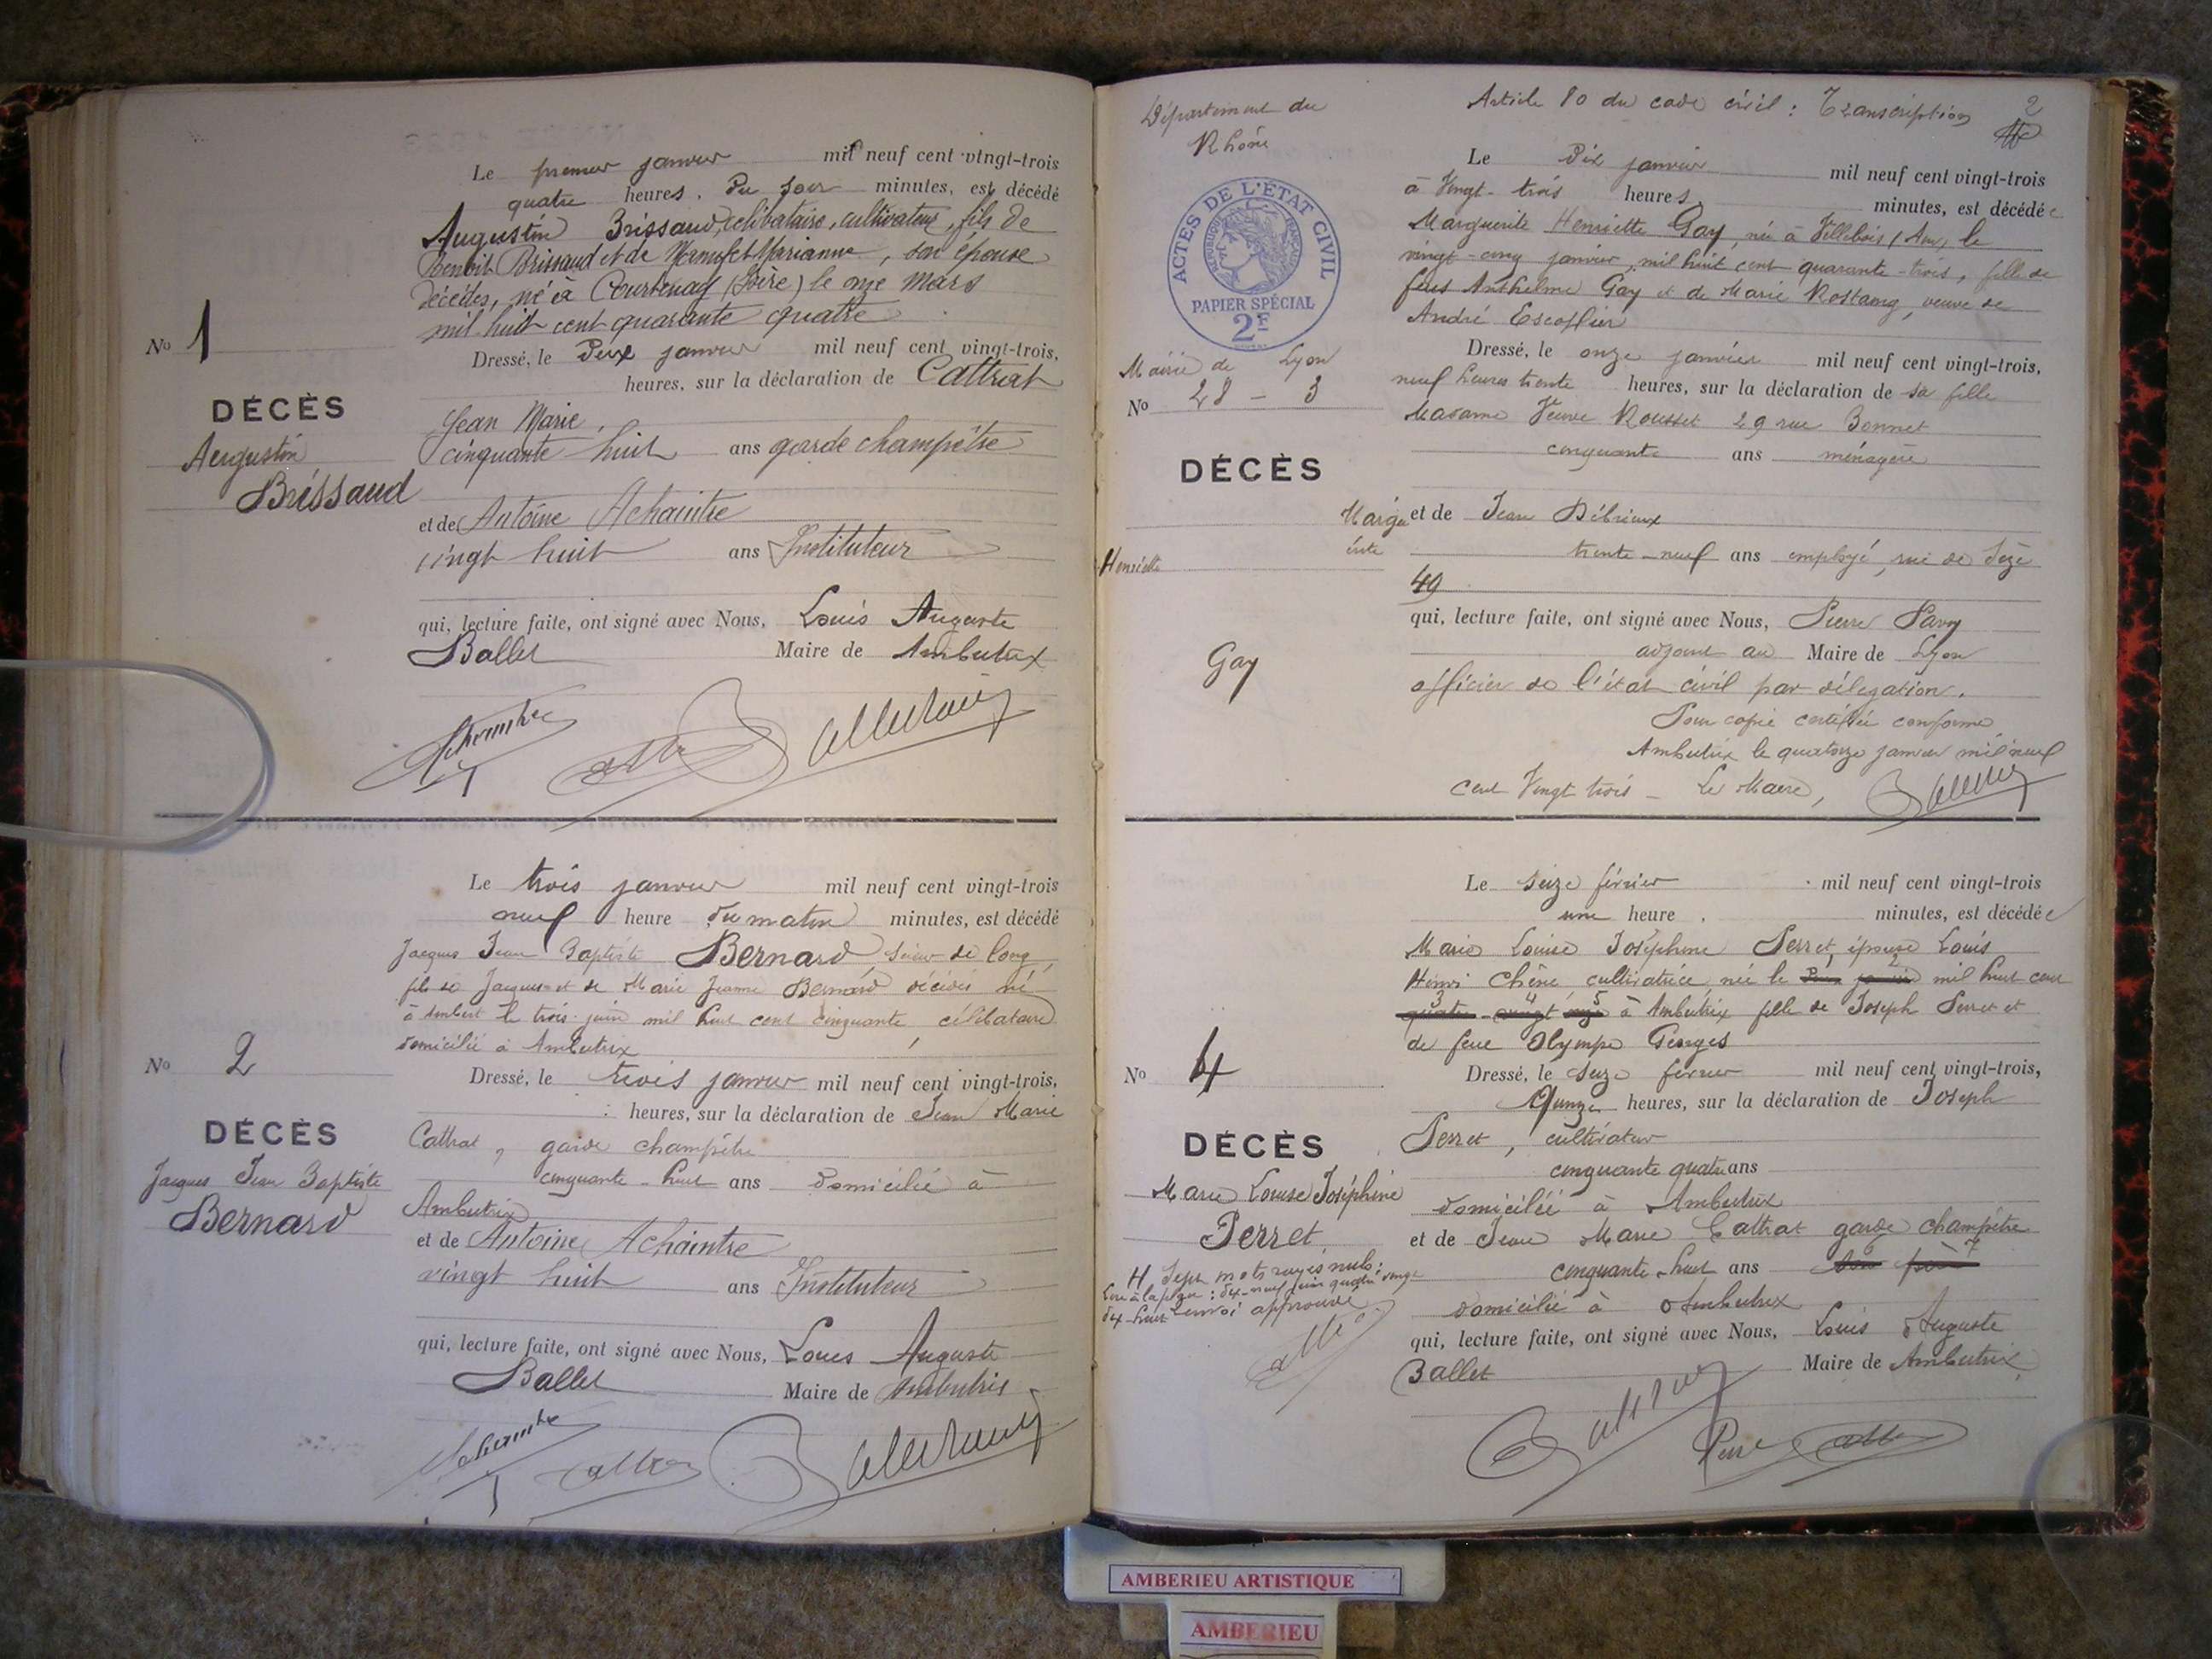 Le premier janvier mil neuf cent vingt-trois
quatre heures. Du soir minutes, est décédé
Augustin Brissaud, célibataire, cultivateur, fils de
Benoit Brissaud et de Marianne, son épouse
décédés, né à Courtenay (Isère) le onze Mars
mil huit cent quarante quatre
No 1
Dressé, le Deux janvier mil neuf cent vingt-trois,
heures, sur la déclaration de Cattrat
DÉCÈS
Jean Marie,
Augustin
cinquante huit ans garde champêtre
Brissaud
et de Antoine Achaintre
vingt huit ans Instituteur
qui, lecture faite, ont signé avec Nous, Louis Auguste
Ballet Maire de Ambutrix
Le trois janvier mil neuf cent vingt-trois
neuf heure du matin minutes, est décédé
Jacques Jean Baptiste Bernard scieur de long,
fils de Jacques et de Marie Jeanne Bernard décédés né
à Ambert le trois juin mil huit cent cinquante, célibataire
domicilié à Ambutrix
No 2
Dressé, le trois janvier mil neuf cent vingt-trois,
heures, sur la déclaration de Jean Marie
DÉCÈS
Cattrat, garde champêtre
Jacques Jean Baptiste
cinquante-huit ans domicilié à
Bernard
Ambutrix
et de Antoine Achaintre
vingt huit ans Instituteur
qui, lecture faite, ont signé avec Nous, Louis Auguste
Ballet Maire de Ambutrix
Département du
Rhône
Article 80 du code civil : Transcription 2
ACTES DE L'ÉTAT CIVIL
RÉPUBLIQUE FRANÇAISE
PAPIER SPÉCIAL
2F
Le Dix janvier mil neuf cent vingt-trois
à Vingt-trois heures minutes, est décédée
Marguerite Henriette Gay, née à Villebois (Ain) le
vingt-cinq janvier mil huit cent quarante-trois, fille de
feus Anthelme Gay et de Marie Rostaing, veuve de
André Escoffier
Mairie de Lyon
No 28 - 3
Dressé, le onze janvier mil neuf cent vingt-trois,
neuf heures trente heures, sur la déclaration de sa fille
Madame Veuve Rousset 29 rue Bonnet
cinquante ans ménagère
DÉCÈS
Marguerite
Henriette
Gay
et de Jean Débrieux
trente-neuf ans employé, rue de Sèze
49
qui, lecture faite, ont signé avec Nous, Pierre Pavy
adjoint au Maire de Lyon
officier de l'état civil par délégation.
Pour copie certifiée conforme
Ambutrix le quatorze janvier mil neuf
cent Vingt trois - Le Maire,
Le seize février mil neuf cent vingt-trois
une heure minutes, est décédée
Marie Louise Joséphine Perret, épouse Louis
Henri Chêne, cultivatrice, née le deux janvier mil huit cent
quatre-vingt onze à Ambutrix fille de Joseph Perret et
de feue Olympe Georges
No 4
Dressé, le seize février mil neuf cent vingt-trois,
Quinze heures, sur la déclaration de Joseph
DÉCÈS
Perret, cultivateur
cinquante quatre ans
Marie Louise Joséphine
Perret
domicilié à Ambutrix
et de Jean Marie Cattrat garde champêtre
cinquante-huit ans son père
domicilié à Ambutrix
Sept mots rayés nuls:
renvoi approuvé
qui, lecture faite, ont signé avec Nous, Louis Auguste
Ballet Maire de Ambutrix
AMBERIEU ARTISTIQUE
AMBERIEU